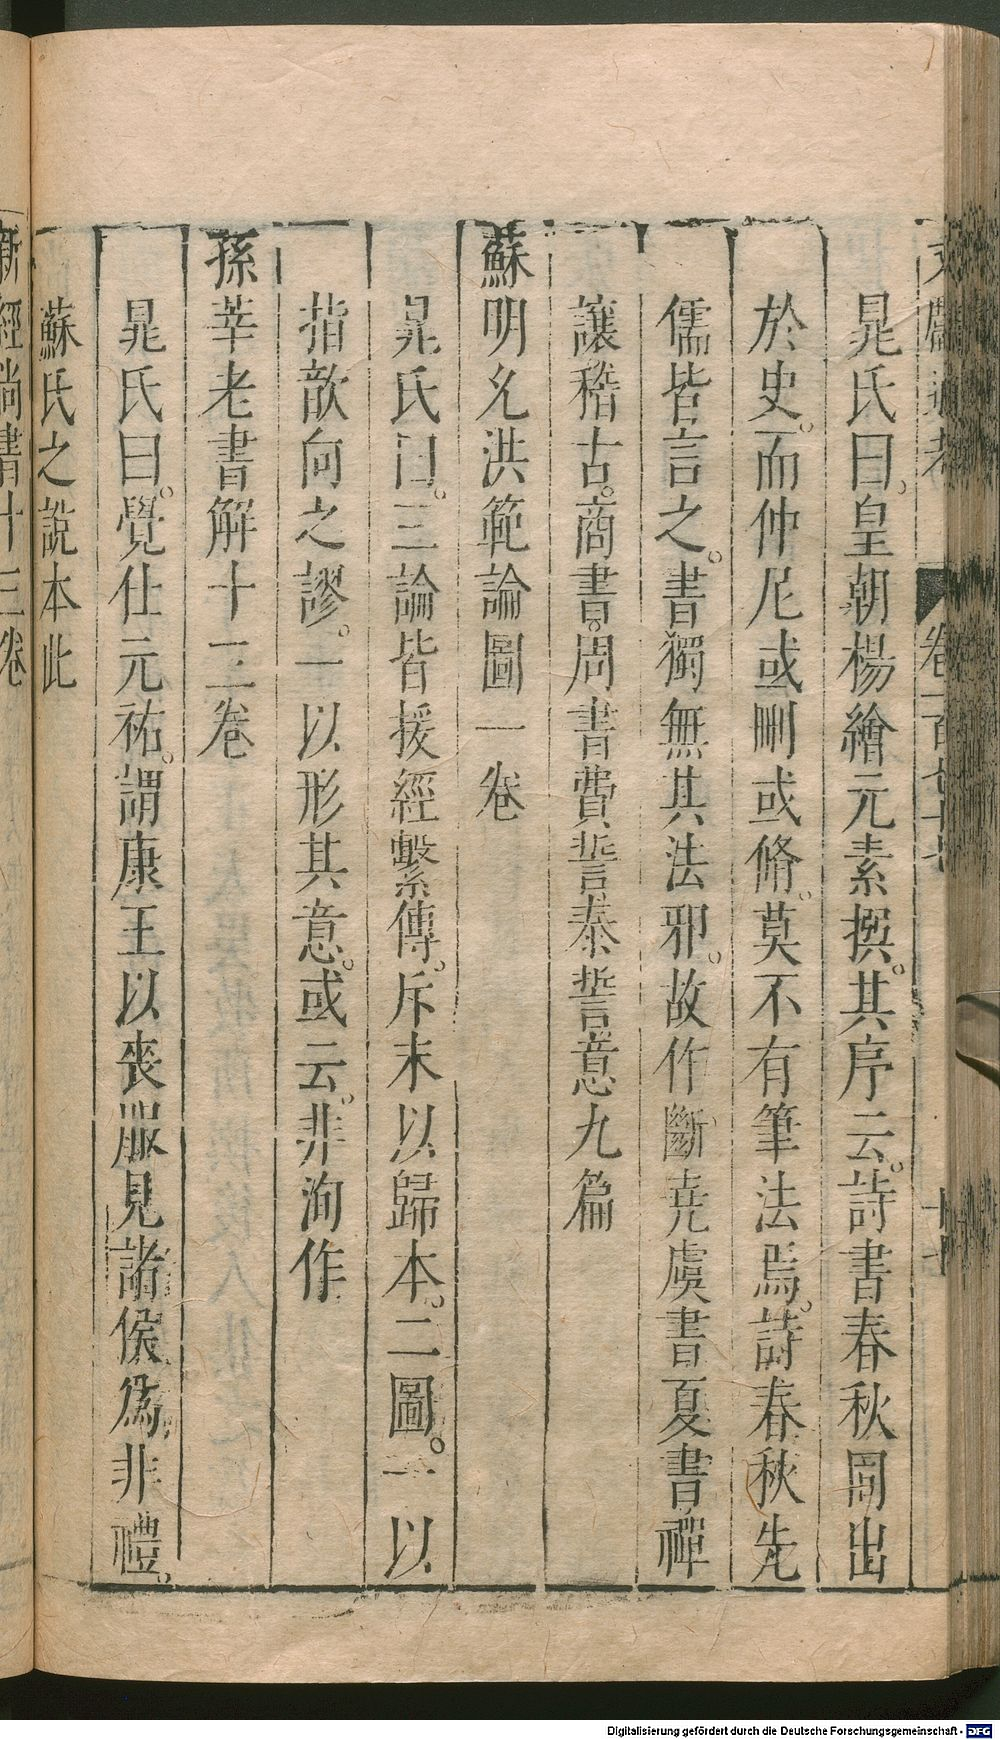 卷一百七十七
十七
晁氏曰皇朝楊繪元素撰其序云詩書春秋同出
於史而仲尼或刪或脩莫不有筆法焉詩春秋先
儒皆言之書獨無其法邪故作斷堯虞書夏書禪
讓稽古商書周書費誓泰誓意九篇
蘇明允洪範論圖一卷
晁氏曰三論皆援經繫傳斥末以歸本二圖一以
指歆向之謬一以形其意或云非洵作
孫莘老書解十三卷
晁氏曰覺仕元祐謂康王以喪服見諸侯爲非禮
蘇氏之說本此
新經尚書十三卷
Digitalisierung gefördert durch die Deutsche Forschungsgemeinschaft - DFG